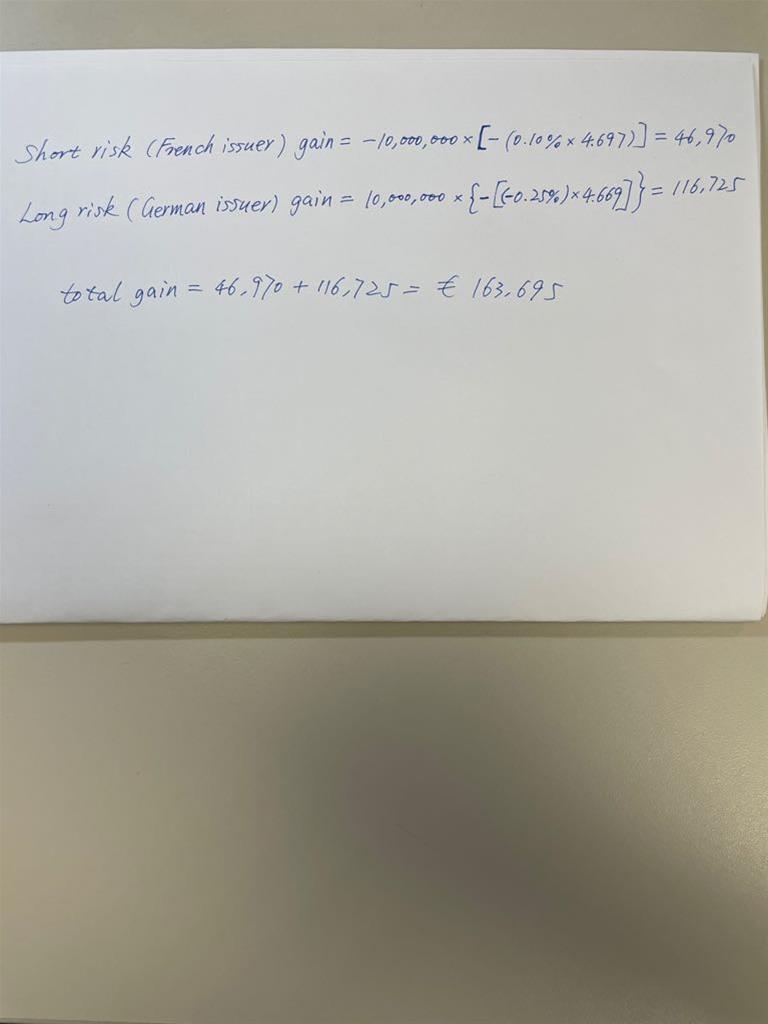 Short risk (French issuer) gain = -10,000,000 × [- (0.10% × 4.697)] = 46,970
Long risk (German issuer) gain = 10,000,000 × {-[(-0.25%) × 4.669]} = 116,725
total gain = 46,970 + 116,725 = € 163,695